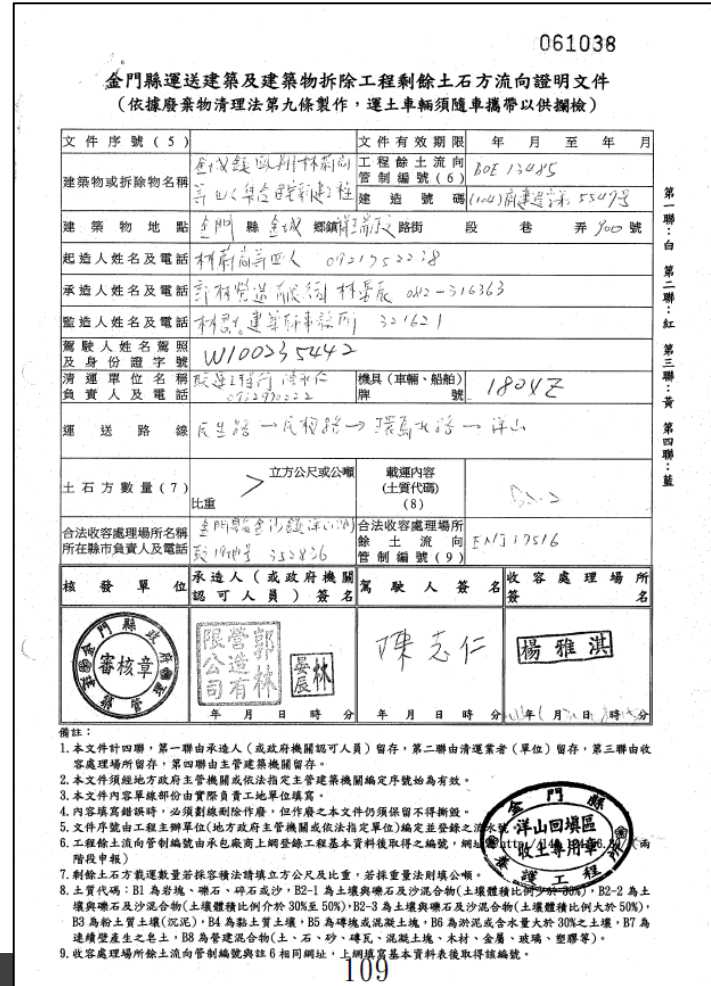 061038
金門縣運送建築及建築物拆除工程剩餘土石方流向證明文件
(依據廢棄物清理法第九條製作，運土車輛須隨車攜帶以供攔檢)
文件序號(5) 文件有效期限 年 月 至 年 月
建築物或拆除物名稱 金城鎮 工程餘土流向管制編號(6) BOE 13485
建造號碼 (104)府建造字第 5549號
建築物地點 金門 縣 金城 鄉鎮 路街 段 巷 弄 900 號
起造人姓名及電話 林蔚 等四人
承造人姓名及電話 郭林營造有限公司 林晏辰 082-316363
監造人姓名及電話 建築師事務所 321621
駕駛人姓名駕照及身份證字號 W100235442
清運單位名稱負責人及電話 機具(車輛、船舶)牌號 1804Z
運送路線 民生路→民權路→環島北路→洋山
土石方數量(7) 立方公尺或公噸 比重 載運內容(土質代碼)(8)
合法收容處理場所名稱所在縣市負責人及電話 金門縣金沙鎮洋山 352836 合法收容處理場所餘土流向管制編號(9)
核發單位 承造人(或政府機關認可人員)簽名 駕駛人簽名 收容處理場所簽名
金門縣政府 審核章
郭林營造有限公司
林晏辰
陳志仁
楊雅淇
年 月 日 時 分 年 月 日 時 分 年 月 日 時 分
第一聯：白 第二聯：紅 第三聯：黃 第四聯：藍
備註：
1.本文件計四聯，第一聯由承造人(或政府機關認可人員)留存，第二聯由清運業者(單位)留存，第三聯由收
容處理場所留存，第四聯由主管建築機關留存。
2.本文件須經地方政府主管機關或依法指定主管建築機關編定序號始為有效。
3.本文件內容單線部份由實際負責工地單位填寫。
4.內容填寫錯誤時，必須劃線刪除作廢，但作廢之本文件仍須保留不得撕毀。
5.文件序號由工程主辦單位(地方政府主管機關或依法指定單位)編定並登錄之流水號。
6.工程餘土流向管制編號由承包廠商上網登錄工程基本資料後取得之編號，網址 (兩
階段申報)
7.剩餘土石方載運數量若採容積法請填立方公尺及比重，若採重量法則填公噸。
8.土質代碼：B1 為岩塊、礫石、碎石或沙，B2-1 為土壤與礫石及沙混合物(土壤體積比例少於 30%)，B2-2 為土
壤與礫石及沙混合物(土壤體積比例介於 30%至 50%)，B2-3 為土壤與礫石及沙混合物(土壤體積比例大於 50%)，
B3 為粉土質土壤(沉泥)，B4 為黏土質土壤，B5 為磚塊或混凝土塊，B6 為淤泥或含水量大於 30%之土壤，B7 為
連續壁產生之皂土，B8 為營建混合物(土、石、砂、磚瓦、混凝土塊、木材、金屬、玻璃、塑膠等)。
9.收容處理場所餘土流向管制編號與註 6 相同網址，上網填寫基本資料表後取得該編號。
金門縣養護工程所 洋山回填區 收土專用章
109